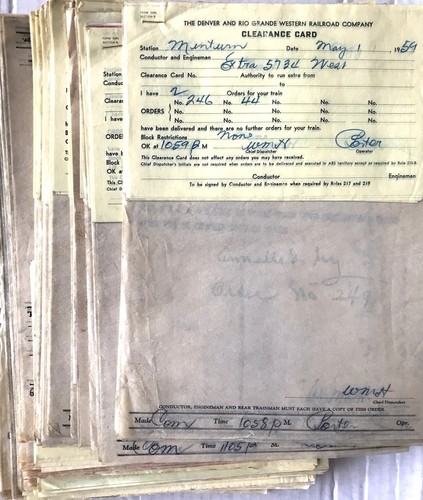 THE DENVER AND RIO GRANDE WESTERN RAILROAD COMPANY
CLEARANCE CARD
Station Minturn Date May 1 1959
Conductor and Engineman Extra 5734 West
Clearance Card No. Authority to run extra from
to
I have 2 Orders for your train
No. 246 No. 44 No. No. No.
ORDERS
No. No. No. No. No.
have been delivered and there are no further orders for your train.
Block Restrictions None
OK at 1059 P M WMH Porter
Chief Dispatcher Operator
This Clearance Card does not affect any orders you may have received.
Chief Dispatcher's initials are not required when orders are to be delivered and executed in ABS territory except as required by Rule
Conductor Engineman
To be signed by Conductor and Enginemen when required by Rules 217 and 219
Order No 249
WMH
Chief Dispatcher
CONDUCTOR, ENGINEMAN AND REAR TRAINMAN MUST EACH HAVE A COPY OF THIS ORDER.
Made Com Time 1058 P M. Porter Opr.
Made Com Time 1105 P M.